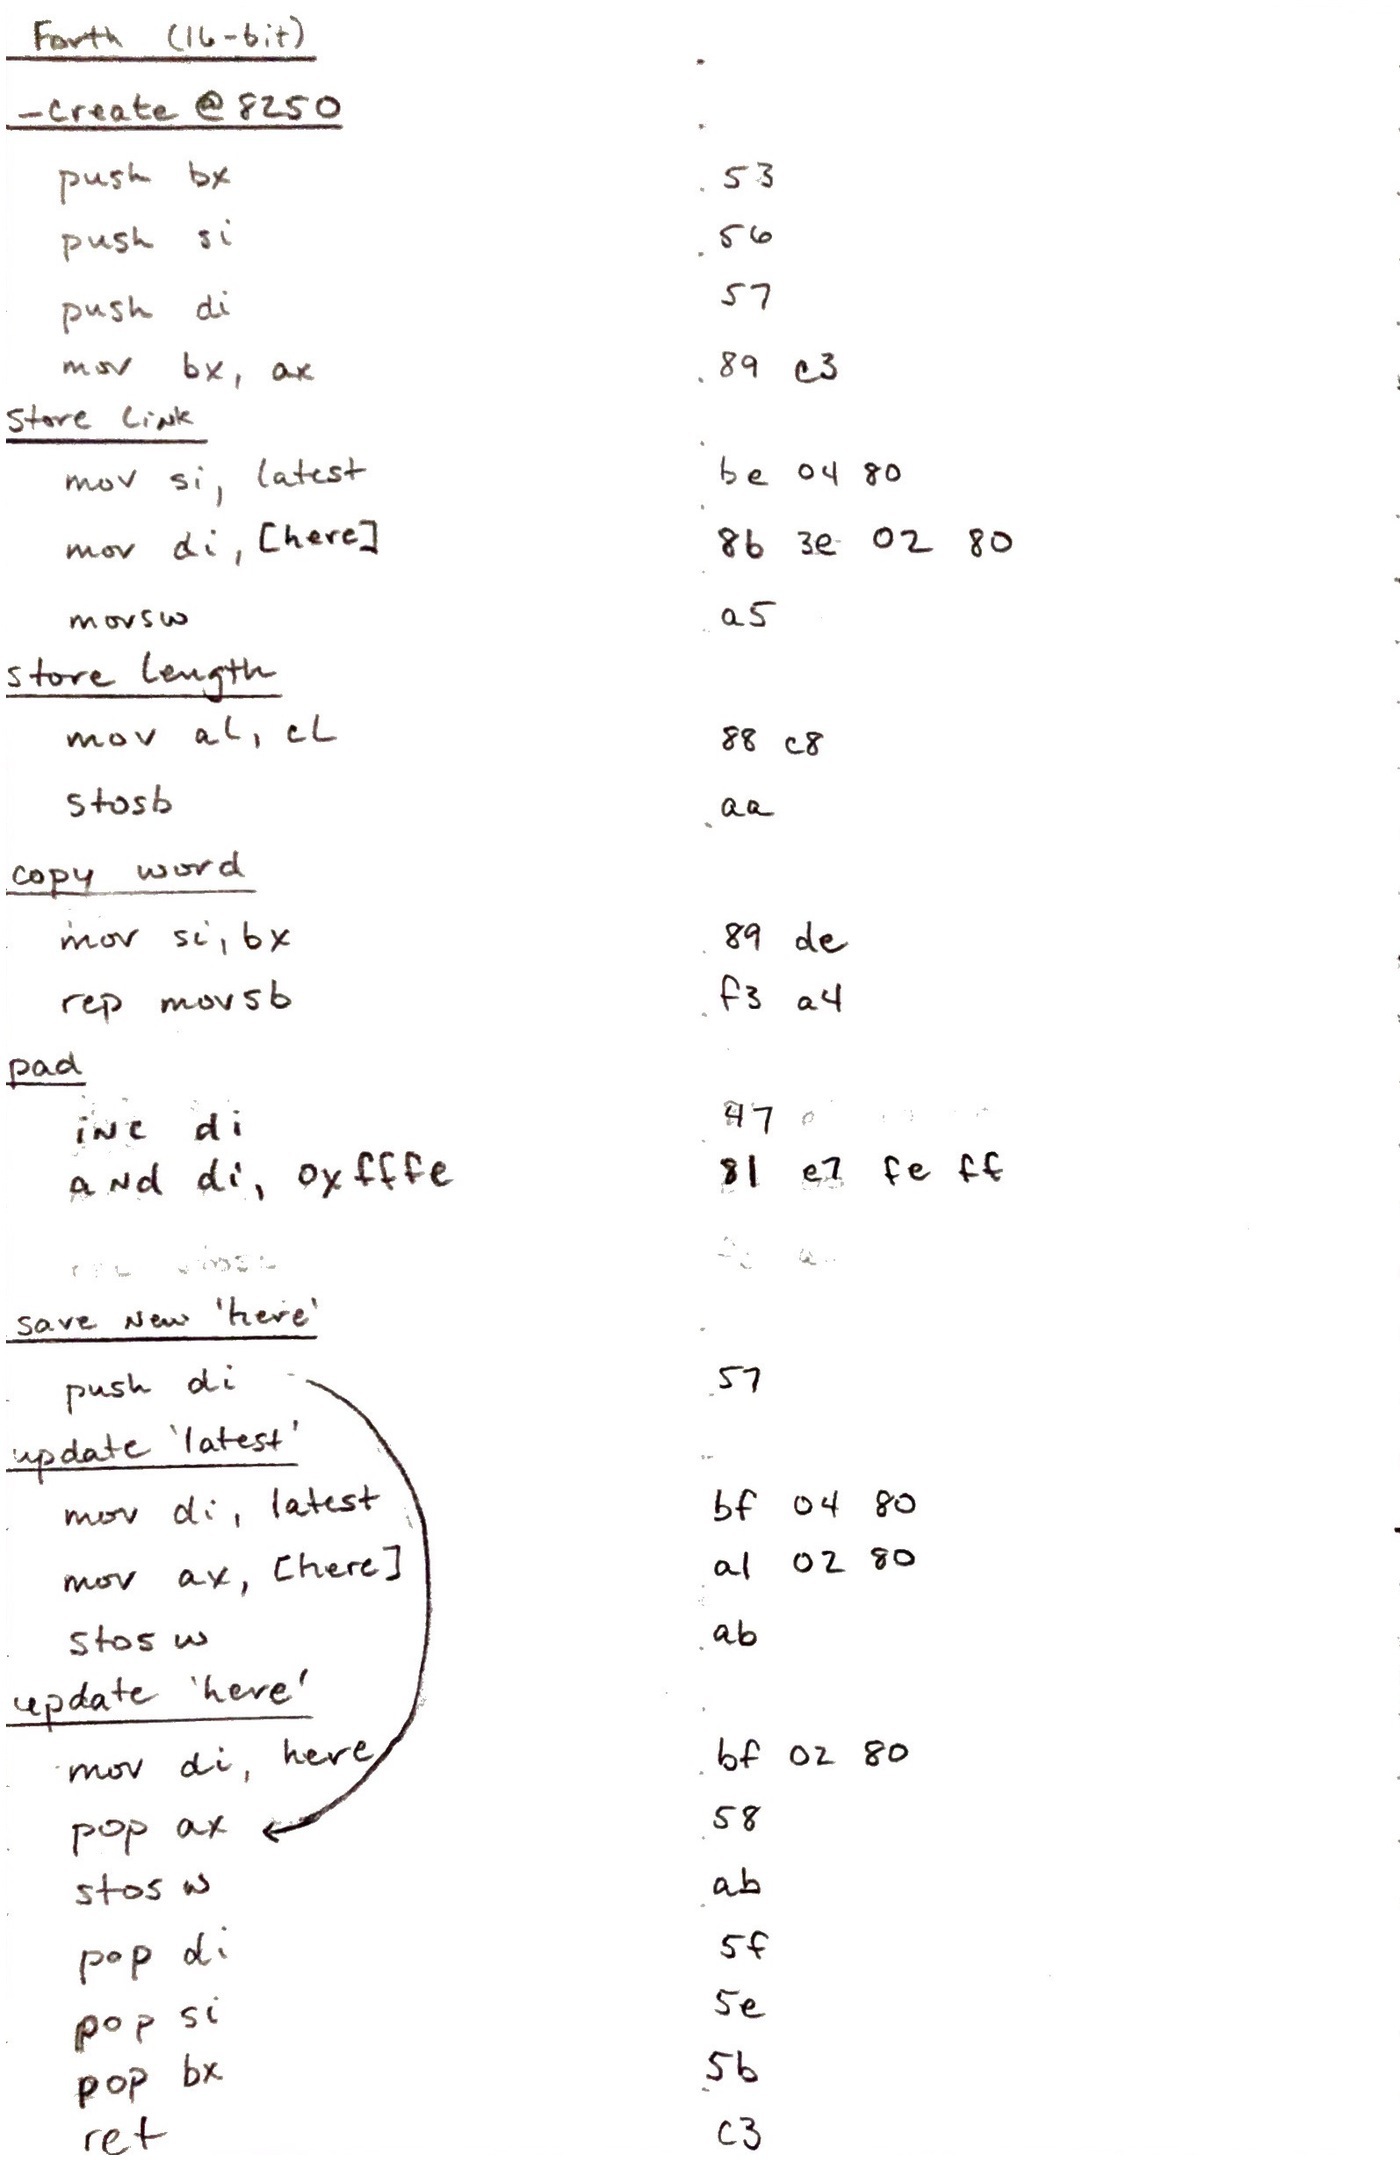 Forth (16-bit)
_create @ 8250
push bx 53
push si 56
push di 57
mov bx, ax 89 c3
store link
mov si, latest be 04 80
mov di, [here] 8b 3e 02 80
movsw a5
store length
mov al, cl 88 c8
stosb aa
copy word
mov si, bx 89 de
rep movsb f3 a4
pad
inc di 47
and di, 0xfffe 81 e7 fe ff
save new 'here'
push di 57
update 'latest'
mov di, latest bf 04 80
mov ax, [here] a1 02 80
stosw ab
update 'here'
mov di, here bf 02 80
pop ax 58
stosw ab
pop di 5f
pop si 5e
pop bx 5b
ret c3